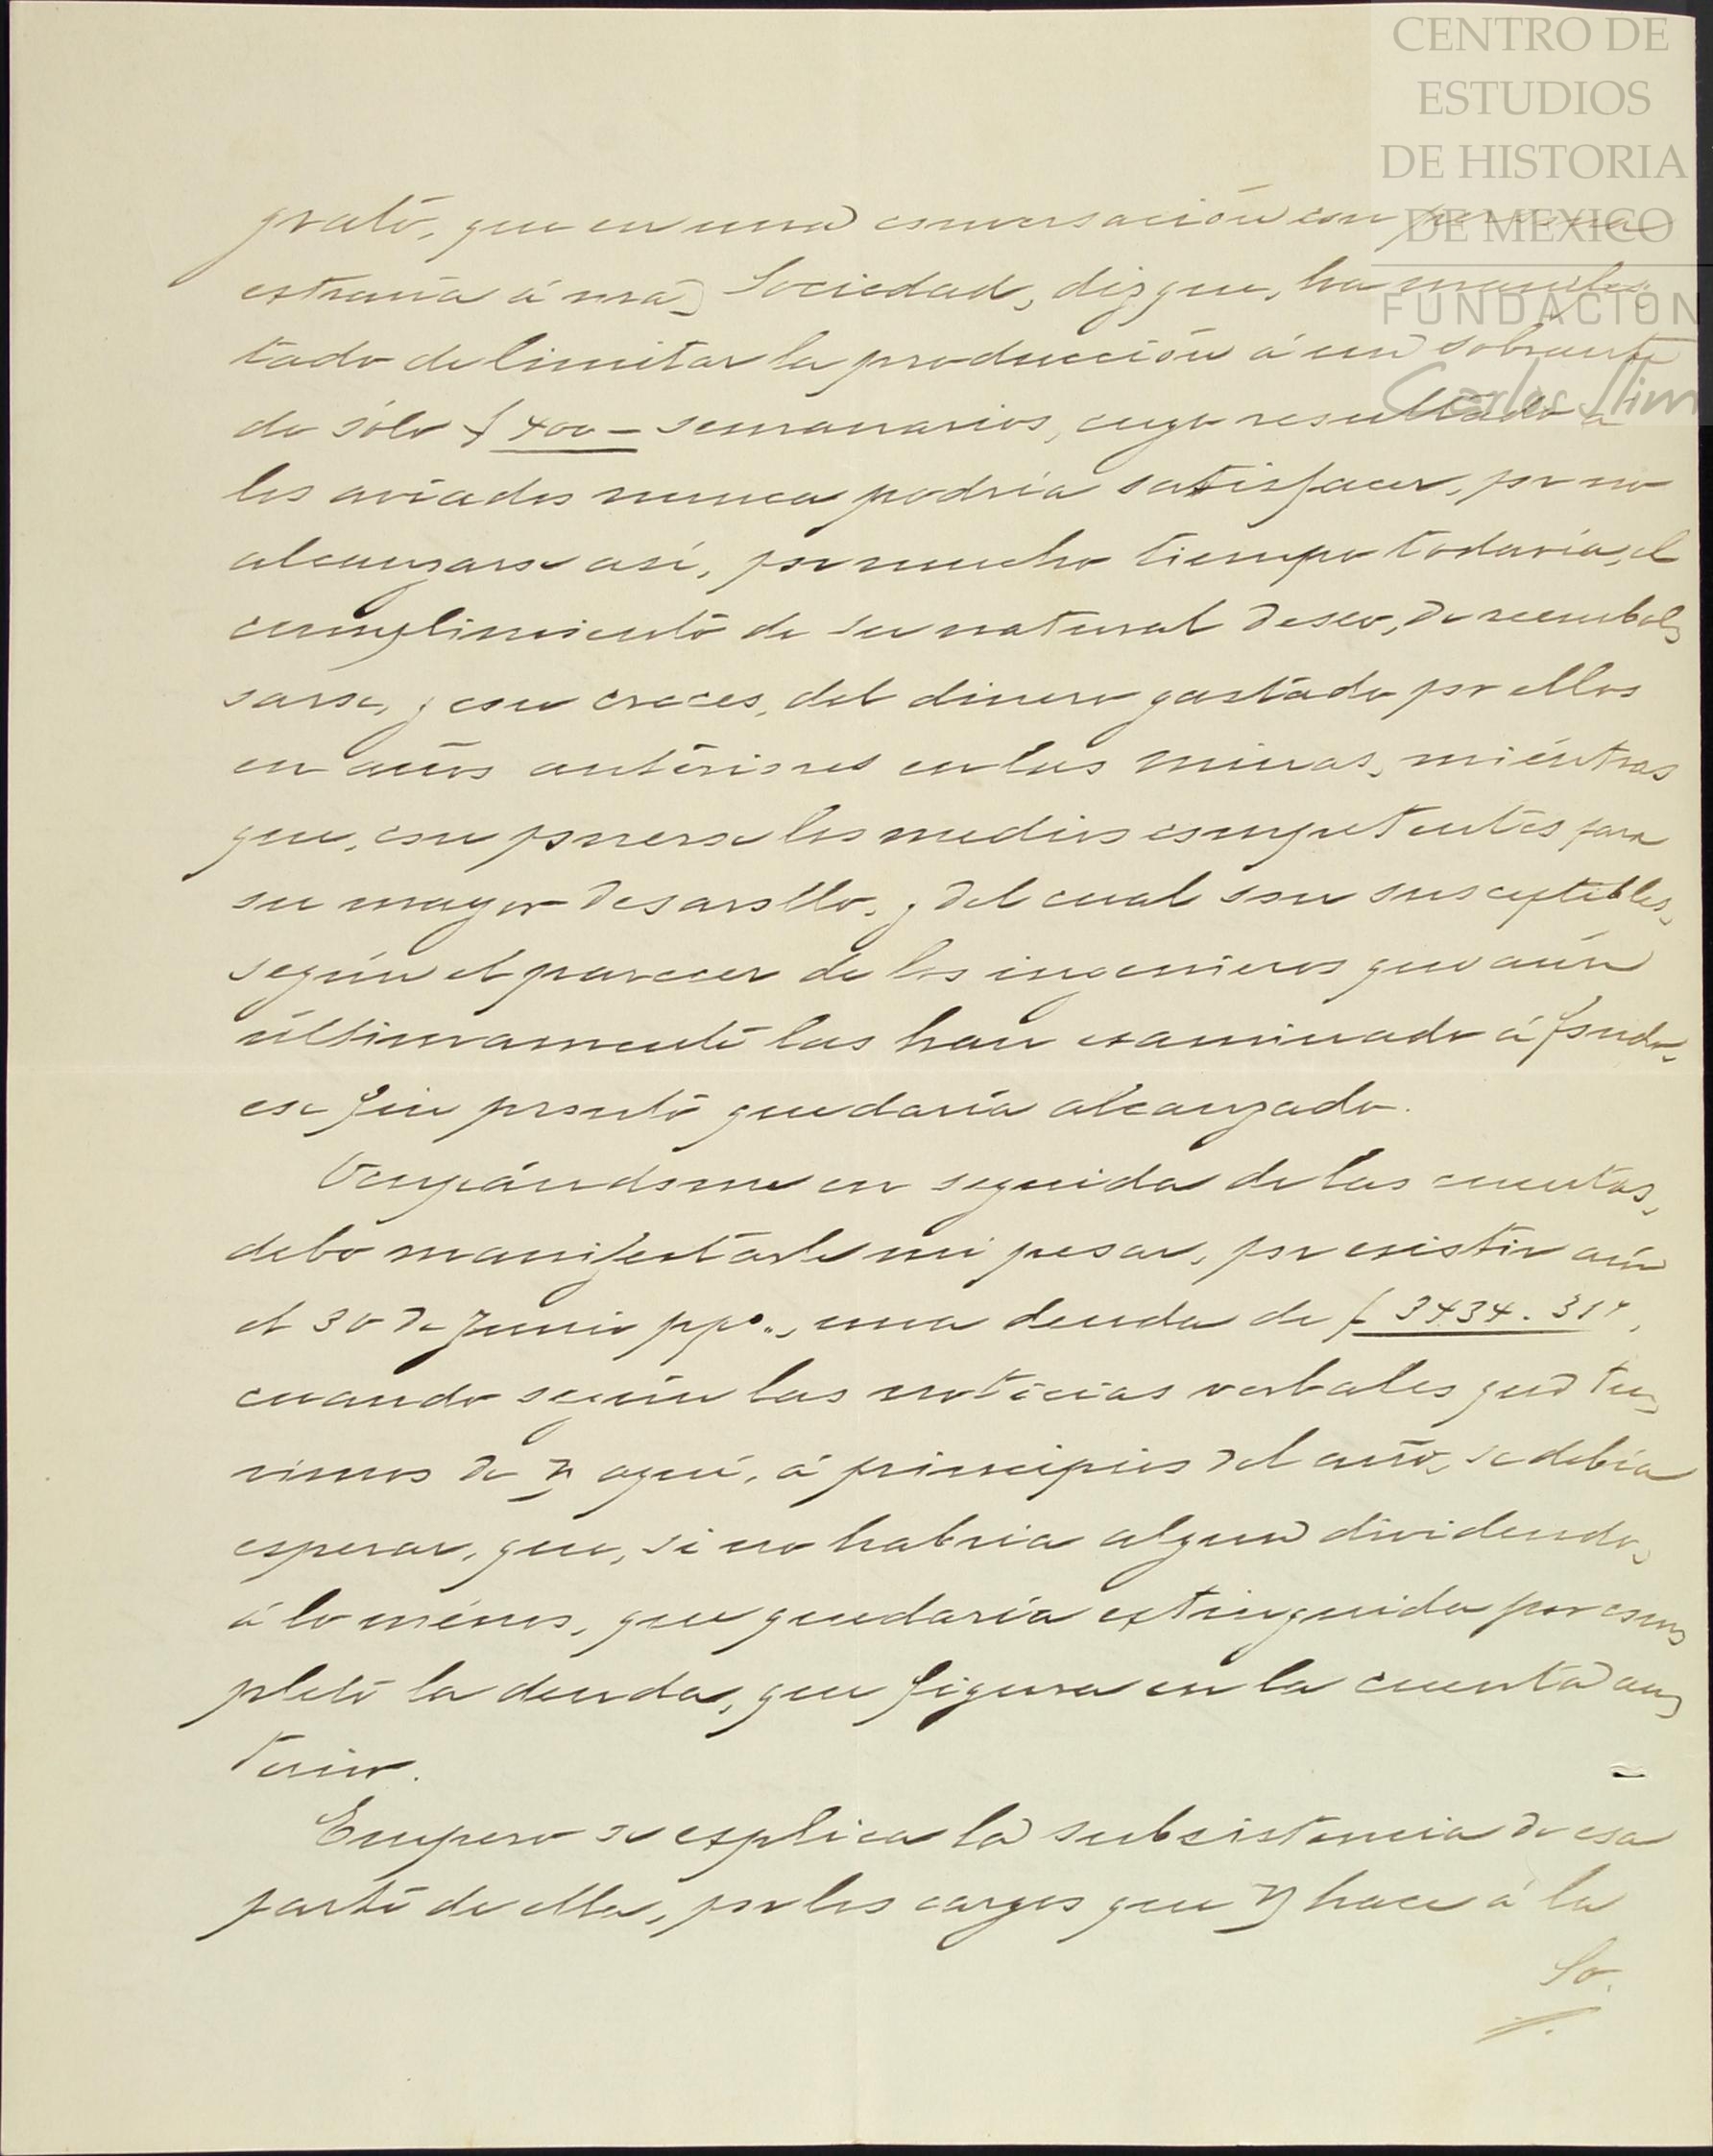 CENTRO DE
ESTUDIOS
DE HISTORIA
DE MEXICO
FUNDACIÓN
Carlos Slim
grato, que en una conversación con persona
estraña á nra Sociedad, dizque, ha manifes-
tado de limitar la producción á un sobrante
de sólo $ 400 = semanarios, cuyo resultado á
los aviados nunca podría satisfacer, por no
alcanzarse así, por mucho tiempo todavía, el
cumplimiento de su natural deseo, de reembol-
sarse, y con creces, del dinero gastado por ellos
en años anteriores en las minas, miéntras
que, con ponerse los medios competentes para
su mayor desarollo, y del cual son susceptibles,
según el parecer de los ingenieros que aún
últimamente las han examinado á fondo,
ese fin pronto quedaría alcanzado.
Ocupándome en seguida de las cuentas,
debo manifestarle mi pesar, por existir aún
el 30 de Junio ppº., una deuda de $ 3434.31",
cuando según las noticias verbales que tu-
vimos de V aquí, á principios del año, se debía
esperar, que, si no habria algun dividendo,
á lo ménos, que quedaría extinguida por com-
pleto la deuda, que figura en la cuenta an-
terior.
Empero se explica la subsistencia de esa
parte de ella, por los cargos que V hace á la
So.